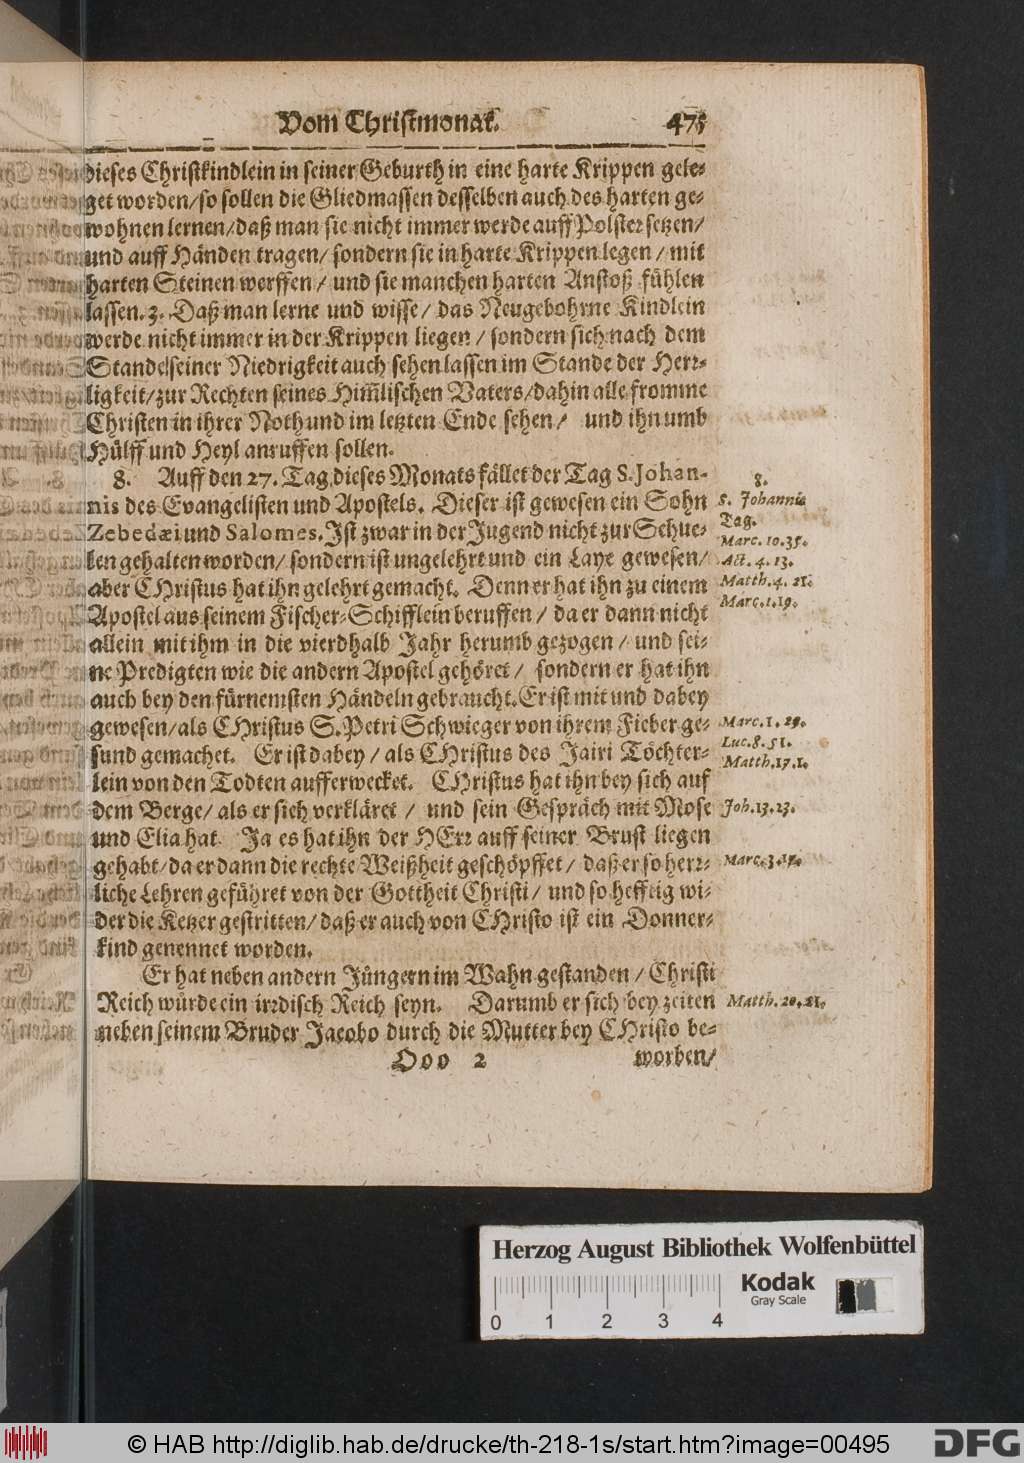 Vom Christmonat. 475
dieses Christkindlein in seiner Geburth in eine harte Krippen gele-
get worden/ so sollen die Gliedmassen desselben auch des harten ge-
wohnen lernen/ daß man sie nicht immer werde auff Polster setzen/
und auff Händen tragen/ sondern sie in harte Krippen legen/ mit
harten Steinen werffen/ und sie manchen harten Anstoß fühlen
lassen. 3. Daß man lerne und wisse/ das Neugebohrne Kindlein
werde nicht immer in der Krippen liegen/ sondern sich nach dem
Stande seiner Niedrigkeit auch sehen lassen im Stande der Herr-
ligkeit/ zur Rechten seines Him̄lischen Vaters/ dahin alle fromme
Christen in ihrer Noth und im letzten Ende sehen/ und ihn umb
Hülff und Heyl anruffen sollen.
8. Auff den 27. Tag dieses Monats fället der Tag S. Johan-
nis des Evangelisten und Apostels. Dieser ist gewesen ein Sohn
Zebedæi und Salomes. Ist zwar in der Jugend nicht zur Schue-
len gehalten worden/ sondern ist ungelehrt und ein Laye gewesen/
aber CHristus hat ihn gelehrt gemacht. Denn er hat ihn zu einem
Apostel aus seinem Fischer-Schifflein beruffen/ da er dann nicht
allein mit ihm in die vierdhalb Jahr herumb gezogen/ und sei-
ne Predigten wie die andern Apostel gehöret/ sondern er hat ihn
auch bey den fürnemsten Händeln gebraucht. Er ist mit und dabey
gewesen/ als CHristus S. Petri Schwieger von ihrem Fieber ge-
sund gemachet. Er ist dabey/ als CHristus des Jairi Töchter-
lein von den Todten aufferwecket. CHristus hat ihn bey sich auf
dem Berge/ als er sich verkläret/ und sein Gespräch mit Mose
und Elia hat. Ja es hat ihn der HErr auff seiner Brust liegen
gehabt/ da er dann die rechte Weißheit geschöpffet/ daß er so herr-
liche Lehren geführet von der Gottheit Christi/ und so hefftig wi-
der die Ketzer gestritten/ daß er auch von CHristo ist ein Donner-
kind genennet worden.
Er hat neben andern Jüngern im Wahn gestanden/ Christi
Reich würde ein irrdisch Reich seyn. Darumb er sich bey zeiten
neben seinem Bruder Jacobo durch die Mutter bey CHristo be-
Ooo 2 worben/
8.
S. Johannis
Tag.
Marc. 10.35.
Act. 4. 13.
Matth. 4. 21.
Marc. 1. 19.
Marc. 1. 29.
Luc. 8. 51.
Matth. 17. 1.
Joh. 13. 23.
Marc. 3. 17.
Matth. 20. 21.
Herzog August Bibliothek Wolfenbüttel
Kodak
Gray Scale
0 1 2 3 4
© HAB http://diglib.hab.de/drucke/th-218-1s/start.htm?image=00495
DFG